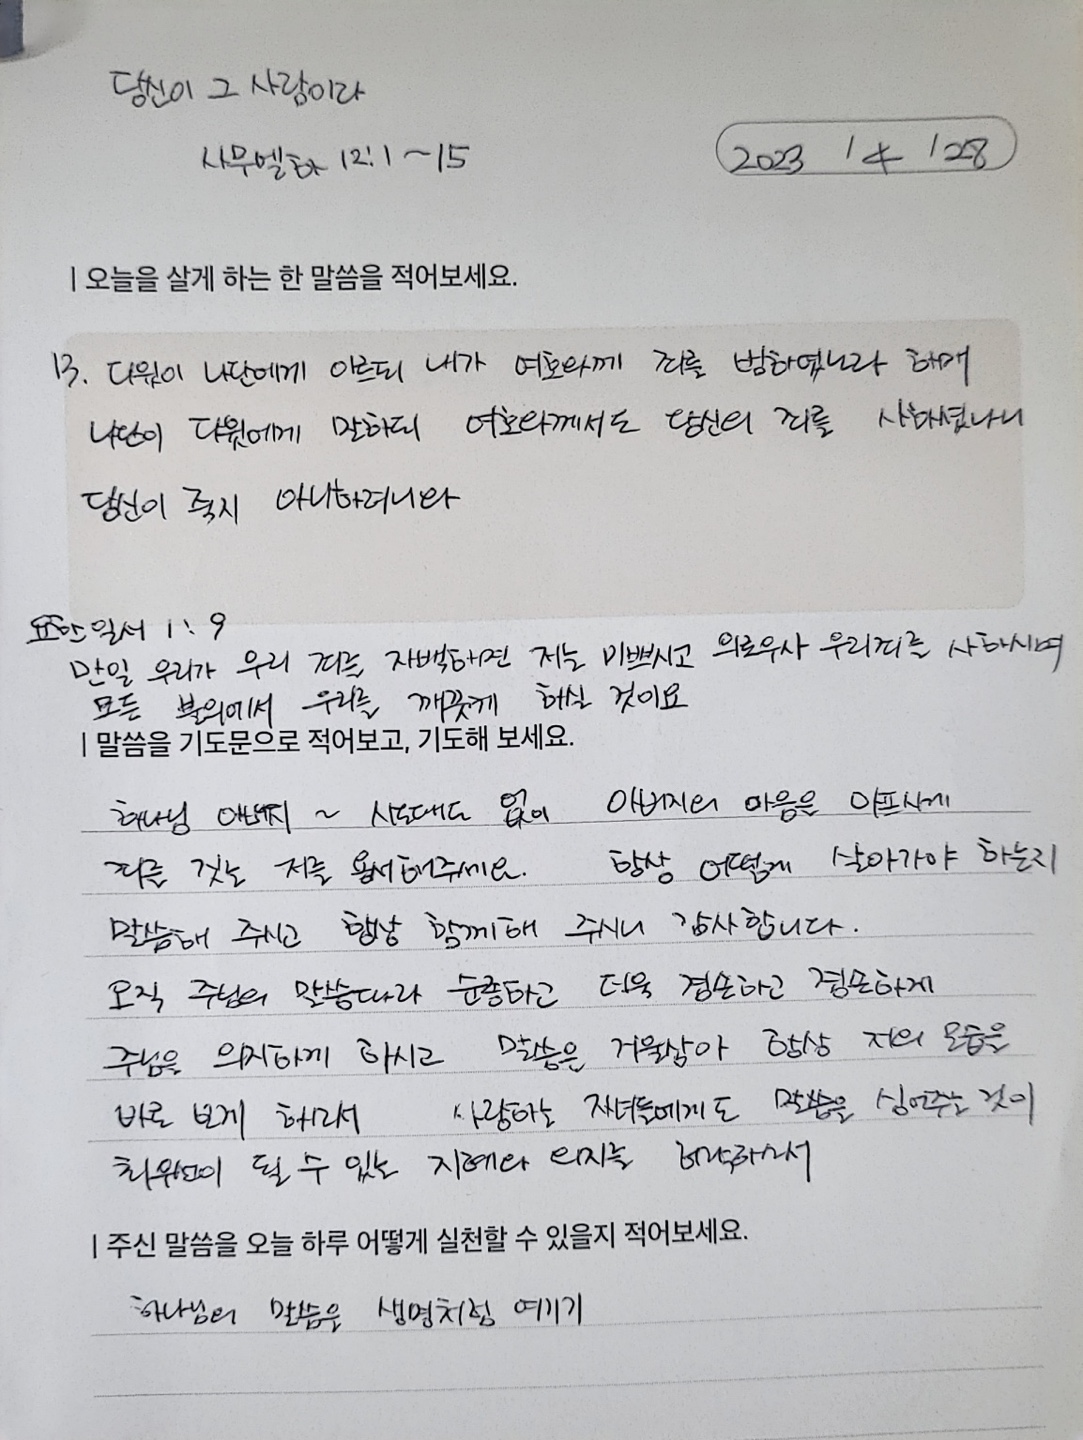 당신이 그 사람이라
사무엘하 12:1~15
2023 / 4 / 28
| 오늘을 살게 하는 한 말씀을 적어보세요.
13. 다윗이 나단에게 이르되 내가 여호와께 죄를 범하였노라 하매
나단이 다윗에게 말하되 여호와께서도 당신의 죄를 사하셨나니
당신이 죽지 아니하려니와
요한일서 1:9
만일 우리가 우리 죄를 자백하면 저는 미쁘시고 의로우사 우리죄를 사하시며
모든 불의에서 우리를 깨끗케 하실 것이요
| 말씀을 기도문으로 적어보고, 기도해 보세요.
하나님 아버지 ~ 시도때도 없이 아버지의 마음을 아프시게
죄를 짓는 저를 용서해주세요. 항상 어떻게 살아가야 하는지
말씀해 주시고 항상 함께해 주시니 감사합니다.
오직 주님의 말씀따라 순종하고 더욱 겸손하고 겸손하게
주님을 의지하게 하시고 말씀은 거울삼아 항상 저의 모습을
바로 보게 하소서 사랑하는 자녀들에게도 말씀을 심어주는 것이
최우선이 될 수 있는 지혜와 의지를 허락하소서
| 주신 말씀을 오늘 하루 어떻게 실천할 수 있을지 적어보세요.
하나님의 말씀은 생명처럼 여기기